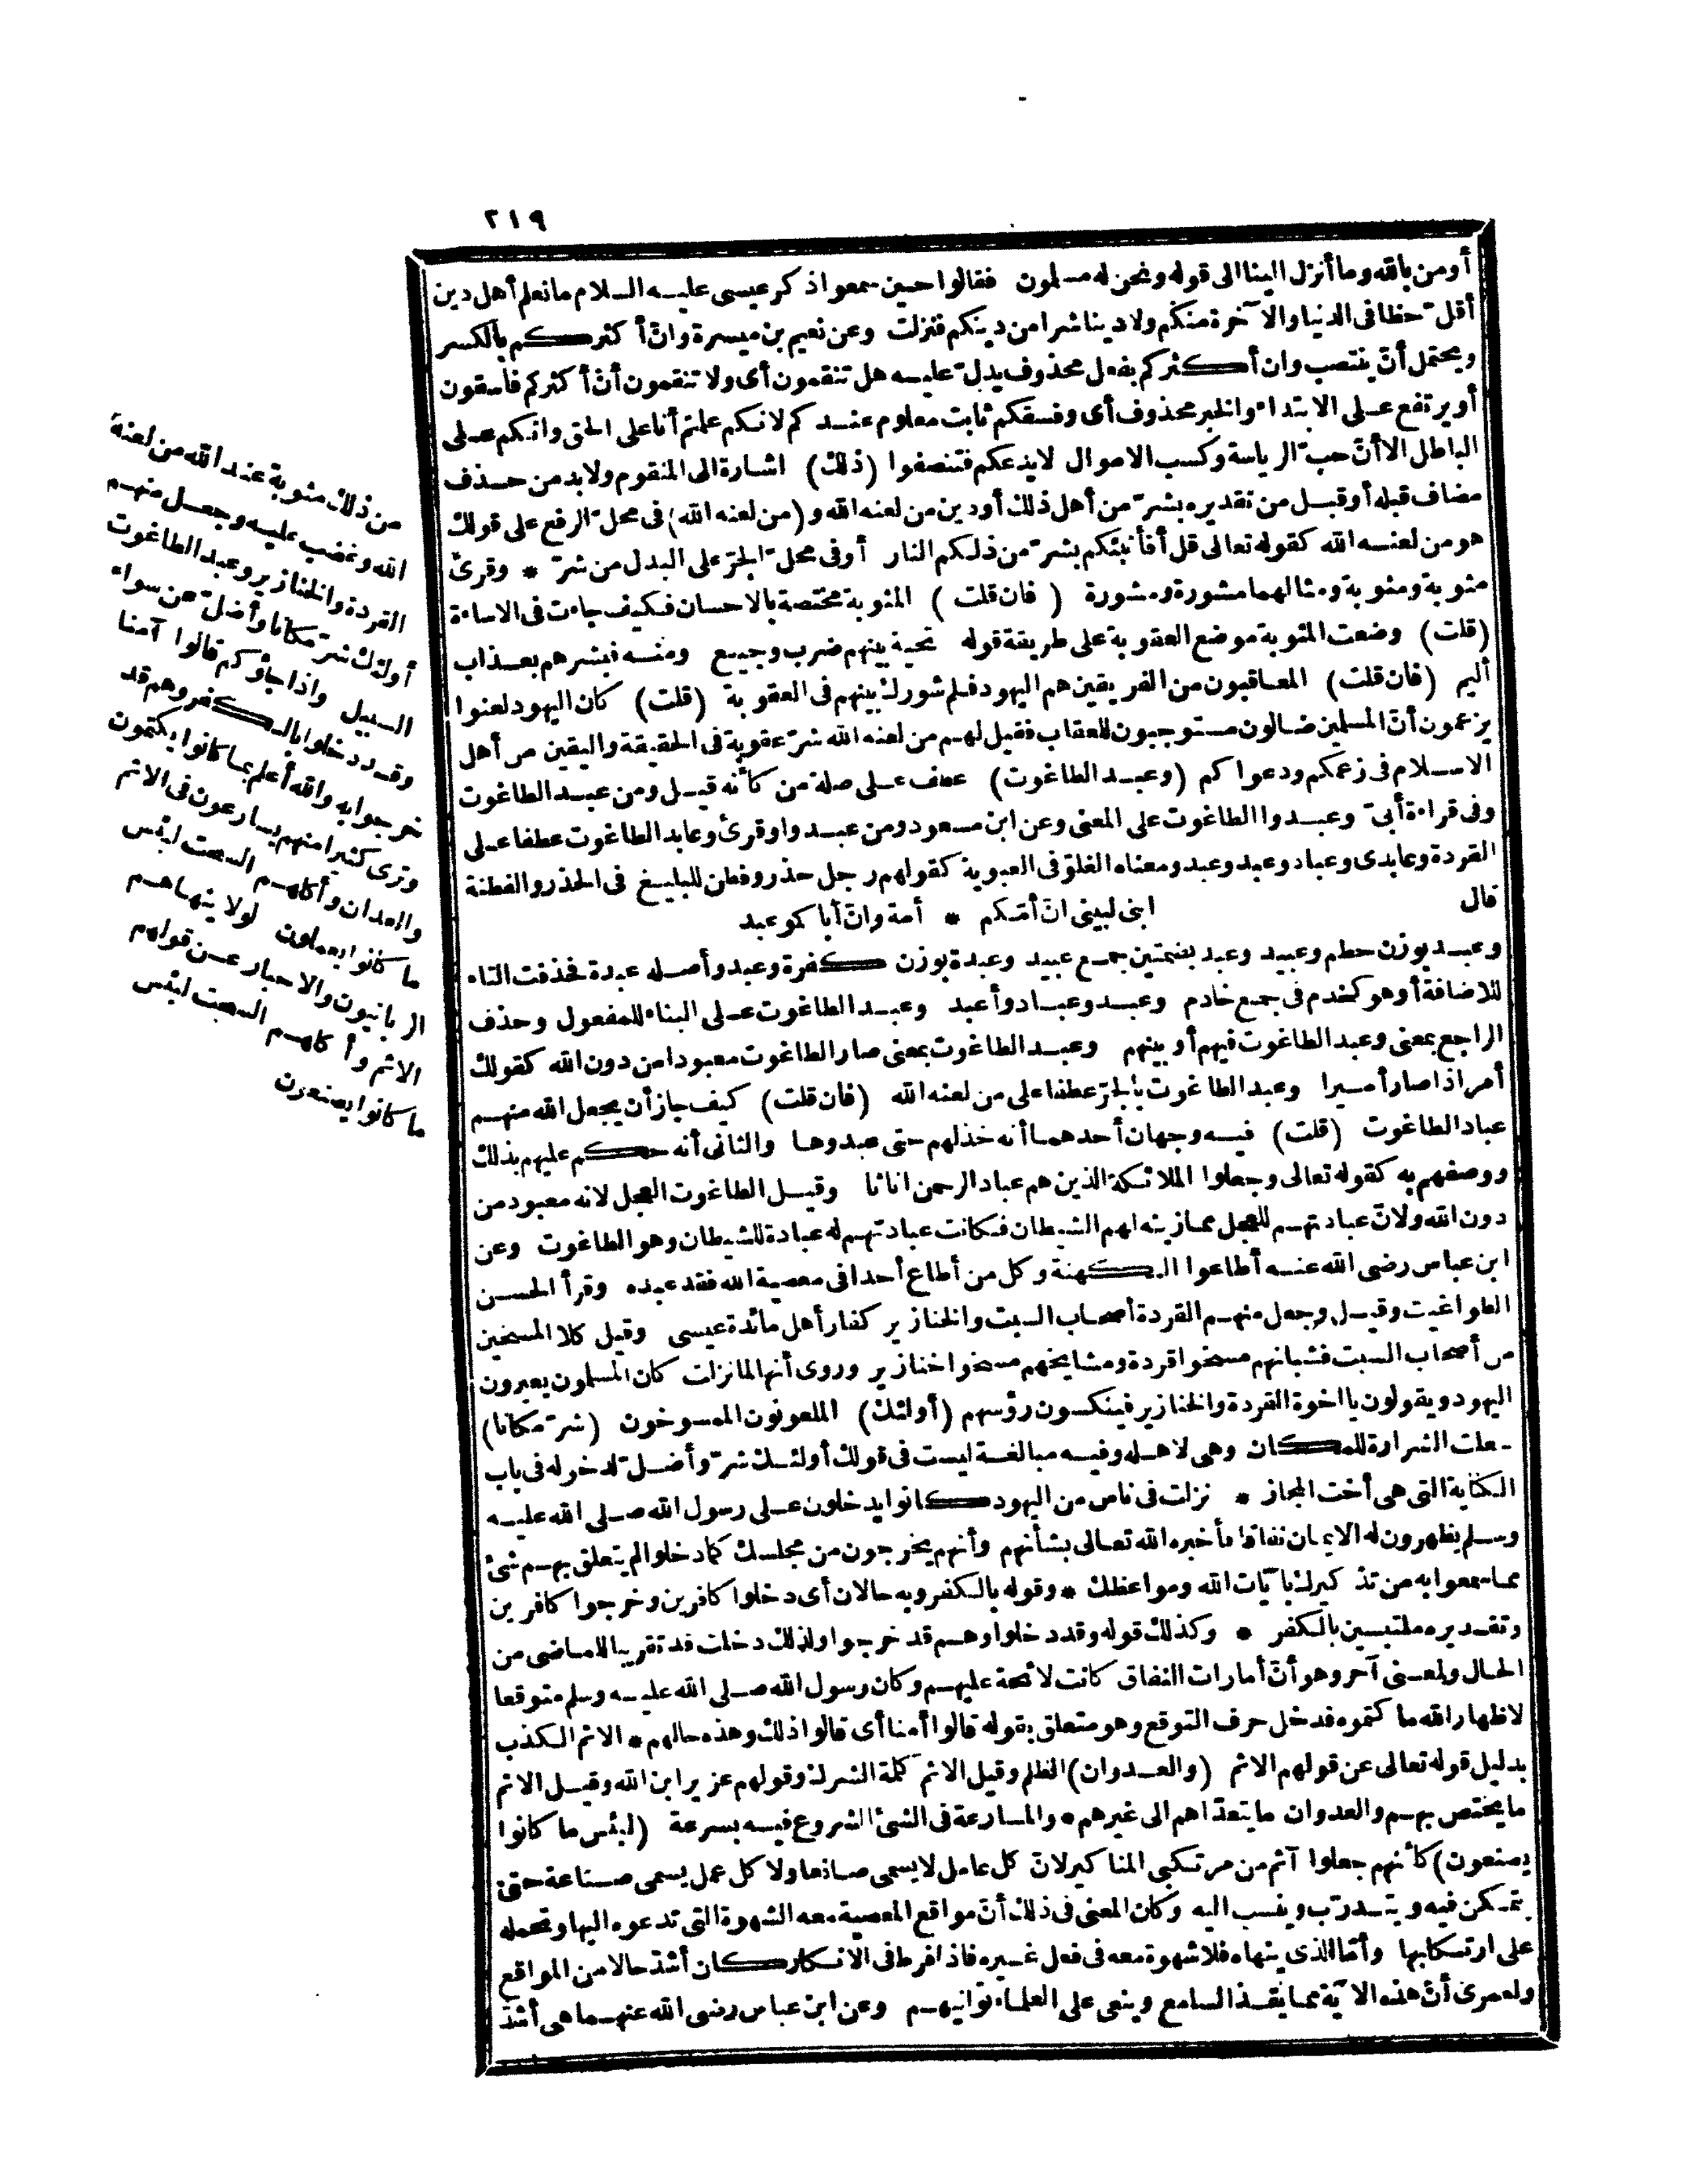 ٢١٩
أومن بالله وما أنزل الينا الى قوله ونحن له مسلمون فقالوا حين سمعوا ذكر عيسى عليه السلام ما نعلم أهل دين
أقل حظا فى الدنيا والآخرة منكم ولا دينا شرا من دينكم فنزلت وعن نعيم بن ميسرة وانّ أكثركم بالكسر
ويحتمل أن ينتصب وان أكثركم بفعل محذوف يدلّ عليه هل تنقمون أى ولا تنقمون أنّ أكثركم فاسقون
أو يرتفع على الابتداء والخبر محذوف أى وفسقكم ثابت معلوم عندكم لانكم علمتم أنا على الحق وانكم على
الباطل الا أنّ حبّ الرياسة وكسب الاموال لا يدعكم فتنصفوا (ذلك) اشارة الى المنقوم ولا بد من حذف
مضاف قبله أو قبل من تقديره بشرّ من أهل ذلك أو دين من لعنه الله و(من لعنه الله) فى محلّ الرفع على قولك
هو من لعنه الله كقوله تعالى قل أفأنبئكم بشرّ من ذلكم النار أو فى محلّ الجرّ على البدل من شرّ * وقرئ
مثوبة ومثوبة ومثالهما مشورة ومشورة (فان قلت) المثوبة مختصة بالاحسان فكيف جاءت فى الاساءة
(قلت) وضعت المثوبة موضع العقوبة على طريقة قوله تحية بينهم ضرب وجيع ومنه فبشرهم بعذاب
أليم (فان قلت) المعاقبون من الفريقين هم اليهود فلم شورك بينهم فى العقوبة (قلت) كان اليهود لعنوا
يزعمون أنّ المسلمين ضالون مستوجبون للعقاب فقيل لهم من لعنه الله شرّ عقوبة فى الحقيقة واليقين من أهل
الاسلام فى زعمكم ودعواكم (وعبد الطاغوت) عطف على صلة من كأنه قيل ومن عبد الطاغوت
وفى قراءة أبىّ وعبدوا الطاغوت على المعنى وعن ابن مسعود ومن عبدوا وقرئ وعابد الطاغوت عطفا على
القردة وعابدى وعباد وعبد وعبد ومعناه الغلوّ فى العبودية كقولهم رجل حذر وفطن للبليغ فى الحذر والفطنة
قال ابنى لبينى انّ أمّكم * أمة وانّ أباكمو عبد
وعبد بوزن حطم وعبيد وعبد بضمتين جمع عبيد وعبدة بوزن كفرة وعبد وأصله عبدة فحذفت التاء
للاضافة أو هو كخدم فى جمع خادم وعبد وعباد وأعبد وعبد الطاغوت على البناء للمفعول وحذف
الراجع بمعنى وعبد الطاغوت فيهم أو بينهم وعبد الطاغوت بمعنى صار الطاغوت معبودا من دون الله كقولك
أمر اذا صار أميرا وعبد الطاغوت بالجرّ عطفا على من لعنه الله (فان قلت) كيف جاز أن يجعل الله منهم
عباد الطاغوت (قلت) فيه وجهان أحدهما أنه خذلهم حتى عبدوها والثانى أنه حكم عليهم بذلك
ووصفهم به كقوله تعالى وجعلوا الملائكة الذين هم عباد الرحمن اناثا وقيل الطاغوت العجل لانه معبود من
دون الله ولانّ عبادتهم للعجل مما زينه لهم الشيطان فكانت عبادتهم له عبادة للشيطان وهو الطاغوت وعن
ابن عباس رضى الله عنه أطاعوا الكهنة وكل من أطاع أحدا فى معصية الله فقد عبده وقرأ الحسن
الطواغيت وقيل وجعل منهم القردة أصحاب السبت والخنازير كفار أهل مائدة عيسى وقيل كلا المسخين
من أصحاب السبت فشبانهم مسخوا قردة ومشايخهم مسخوا خنازير وروى أنها لما نزلت كان المسلمون يعيرون
اليهود ويقولون يا اخوة القردة والخنازير فينكسون رؤسهم (أولئك) الملعونون الممسوخون (شرّ مكانا)
جعلت الشرارة للمكان وهى لاهله وفيه مبالغة ليست فى قولك أولئك شرّ وأضلّ لدخوله فى باب
الكناية التى هى أخت المجاز * نزلت فى ناس من اليهود كانوا يدخلون على رسول الله صلى الله عليه
وسلم يظهرون له الايمان نفاقا فأخبره الله تعالى بشأنهم وأنهم يخرجون من مجلسك كما دخلوا لم يتعلق بهم شئ
مما سمعوا به من تذكيرك بآيات الله ومواعظك * وقوله بالكفر وبه حالان أى دخلوا كافرين وخرجوا كافرين
وتقديره ملتبسين بالكفر * وكذلك قوله وقد دخلوا وهم قد خرجوا ولذلك دخلت قد تقريبا للماضى من
الحال ولمعنى آخر وهو أنّ أمارات النفاق كانت لائحة عليهم وكان رسول الله صلى الله عليه وسلم متوقعا
لاظهار الله ما كتموه فدخل حرف التوقع وهو متعلق بقوله قالوا آمنا أى قالوا ذلك وهذه حالهم * الاثم الكذب
بدليل قوله تعالى عن قولهم الاثم (والعدوان) الظلم وقيل الاثم كلمة الشرك وقولهم عزير ابن الله وقيل الاثم
ما يختص بهم والعدوان ما يتعدّاهم الى غيرهم * والمسارعة فى الشئ الشروع فيه بسرعة (لبئس ما كانوا
يصنعون) كأنهم جعلوا آثم من مرتكبى المناكير لانّ كل عامل لا يسمى صانعا ولا كل عمل يسمى صناعة حتى
يتمكن فيه ويتدرّب وينسب اليه وكان المعنى فى ذلك أنّ مواقع المعصية معه الشهوة التى تدعوه اليها وتحمله
على ارتكابها وأمّا الذى ينهاه فلا شهوة معه فى فعل غيره فاذا فرط فى الانكار كان أشدّ حالا من المواقع
ولعمرى أنّ هذه الآية مما يقذ السامع وينعى على العلماء توانيهم وعن ابن عباس رضى الله عنهما هى أشدّ
من ذلك مثوبة عند الله من لعنه
الله وغضب عليه وجعل منهم
القردة والخنازير وعبد الطاغوت
أولئك شرّ مكانا وأضلّ عن سواء
السبيل واذا جاؤكم قالوا آمنا
وقد دخلوا بالكفر وهم قد
خرجوا به والله أعلم بما كانوا يكتمون
وترى كثيرا منهم يسارعون فى الاثم
والعدوان وأكلهم السحت لبئس
ما كانوا يعملون لولا ينهاهم
الربانيون والاحبار عن قولهم
الاثم وأكلهم السحت لبئس
ما كانوا يصنعون